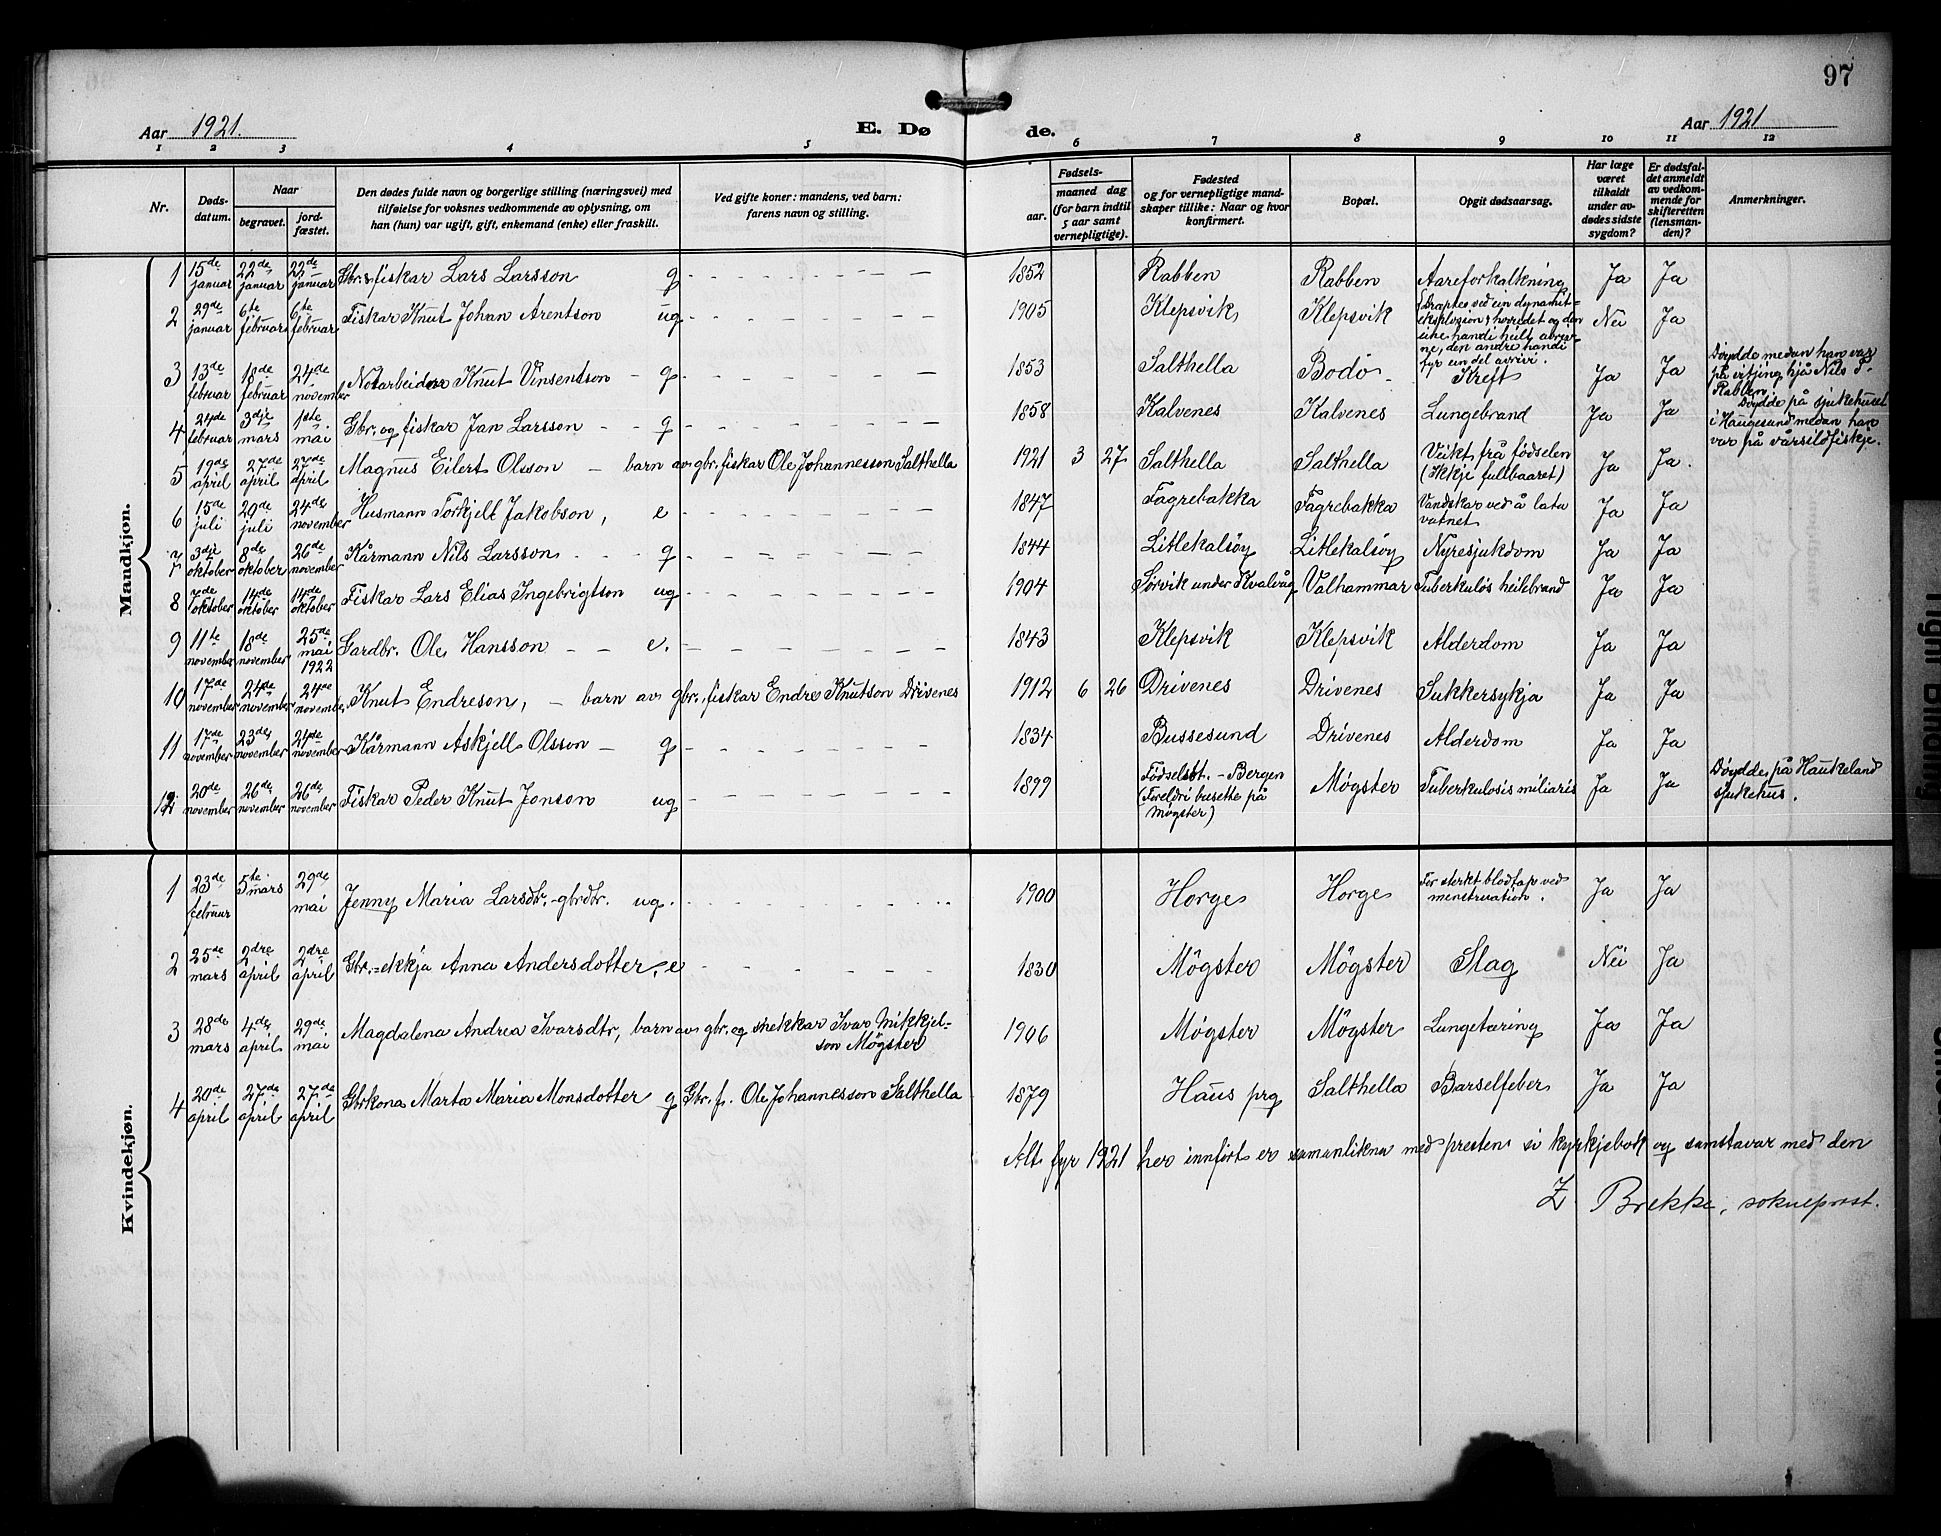 97
Aar 1921.
E. Døde.
Aar 1921
1 2 3 4 5 6 7 8 9 10 11 12
Nr.
Dødsdatum.
Naar
begravet.
jordfæstet.
Den dødes fulde navn og borgerlige stilling (næringsvei) med
tilføielse for voksnes vedkommende av oplysning, om
han (hun) var ugift, gift, enkemand (enke) eller fraskilt.
Ved gifte koner: mandens, ved barn:
farens navn og stilling.
Fødsels-
aar.
maaned dag
(for barn indtil
5 aar samt
vernepligtige).
Fødested
og for vernepligtige mand-
skaper tillike: Naar og hvor
konfirmert.
Bopæl.
Opgit dødsaarsag.
Har læge
været
tilkaldt
under av-
dødes sidste
sygdom?
Er dødsfal-
det anmeldt
av vedkom-
mende for
skifteretten
(lensman-
den)?
Anmerkninger.
Mandkjøn.
1 15de januar 22de januar 22de januar Gbr. & fiskar Lars Larsson g 1852 Rabben Rabben Aareforkalkning Ja Ja
2 29de januar 6te februar 6te februar Fiskar Knut Johan Arentson ug 1905 Klepsvik Klepsvik (Draptes ved ein dynamit-
eksplosion, hovudet og den
eine handi heilt avriv-
ne, den andre handi
fyr ein del avrivi. Nei Ja
3 13de februar 18de februar 24de november Notarbeidar Knut Vinsentson g 1853 Salthella Bodö Kreft Ja Ja Döydde medan han var
på vitjing hjå Nils T.
Rabben.
4 24de februar 3dje mars 1ste mai Gbr. og fiskar Jan Larsson g 1858 Kalvenes Kalvenes Lungebrand Ja Ja Döydde på sjukehuset
i Haugesund medan han
var på vårsildfiskje.
5 19de april 27de april 27de april Magnus Eilert Olsson – barn av gbr. fiskar Ole Johannesson Salthella 1921 3 27 Salthella Salthella Veikt frå födselen
(Ikkje fullbaaret) Ja Ja.
6 15de juli 20de juli 24de november Husmann Torkjell Jakobson, e 1847 Fagrebakka Fagrebakka Vandskar ved å lata
vatnet Ja Ja
7 3dje oktober 8de oktober 26de november Kårmann Nils Larsson g 1844 Litlekalsöy Litlekalsöy Nyresjukdom Ja Ja
8 7de oktober 14de oktober 14de oktober Fiskar Lars Elias Ingebrigtson ug 1904 Sörvik under Kvalvåg Valhammar Tuberkulös heilebrand Ja Ja
9 11te november 18de november 25de mai 1922 Gardbr. Ole Hansson e. 1843 Klepsvik Klepsvik Alderdom Ja Ja
10 17de november 24de november 24de november Knut Endreson, – barn av gbr., fiskar Endre Knutson Drivenes 1912 6 26 Drivenes Drivenes Sukkersykja Ja Ja
11 17de november 23de november 24de november Kårmann Askjell Olsson – g 1834 Bussesund Drivenes Alderdom Ja Ja
12 20de november 26de november 26de november Fiskar Peder Knut Jonson ug 1899 Födselsst. - Bergen
(Foreldri busette på
Mögster) Mögster Tuberkulosis miliaris Ja Ja Döydde på Haukeland
sjukehus.
Kvindekjøn.
1 23de februar 5te mars 29de mai Jenny Maria Larsdtr. gbrdtr. ug. 1900 Horge Horge For sterkt blodtap ved
menstruation. Ja Ja
2 25de mars 2dre april 2dre april Gbr.-ekkja Anna Andersdotter, e 1830 Mögster Mögster Slag Nei Ja
3 28de mars 4de april 29de mai Magdalena Andrea Ivarsdtr, barn av gbr. og snekkar Ivar Mikkjel-
son Mögster 1906 Mögster Mögster Lungetæring Ja Ja
4 20de april 27de april 27de april Gbrkona Marta Maria Monsdotter g Gbr. f. Ole Johannesson Salthella 1879 Haus prg Salthella Barselfeber Ja Ja
Alt fyr 1921 her innfört er samanlikna med presten si kyrkjebok og samstavar med den
Z. Brekke, sokneprest.